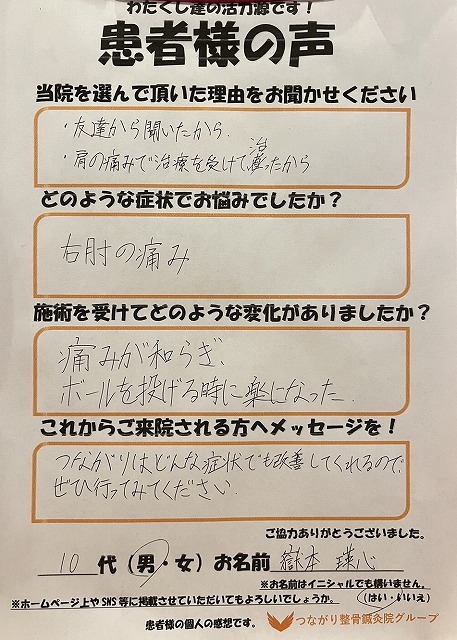 わたくし達の活力源です！
患者様の声
当院を選んで頂いた理由をお聞かせください
・友達から聞いたから.
・肩の痛みで治療を受けて治ったから
どのような症状でお悩みでしたか？
右肘の痛み
施術を受けてどのような変化がありましたか？
痛みが和らぎ、
ボールを投げる時に楽になった.
これからご来院される方へメッセージを！
つながりはどんな症状でも改善してくれるので、
ぜひ行ってみてください.
ご協力ありがとうございました。
10 代（男・女）お名前 嶽本 瑛心
※お名前はイニシャルでも構いません。
※ホームページ上やSNS等に掲載させていただいてもよろしいでしょうか。（はい・いいえ）
患者様の個人の感想です。 つながり整骨鍼灸院グループ